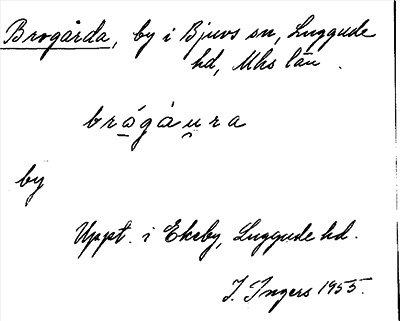 Brogårda, by i Bjuvs sn, Luggude
hd, Mhs län.
brågåura
by
Uppt. i Ekeby, Luggude hd.
I. Ingers 1955.